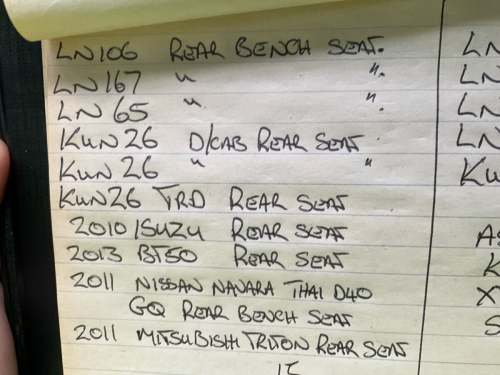 LN106 REAR BENCH SEAT.
LN167 " ".
LN65 " ".
KUN26 D/CAB REAR SEAT
KUN26 " "
KUN26 TRD REAR SEAT
2010 ISUZU REAR SEAT
2013 BT50 REAR SEAT
2011 NISSAN NAVARA THAI D40
GQ REAR BENCH SEAT
2011 MITSUBISHI TRITON REAR SEAT
LN
LN
LN
LN